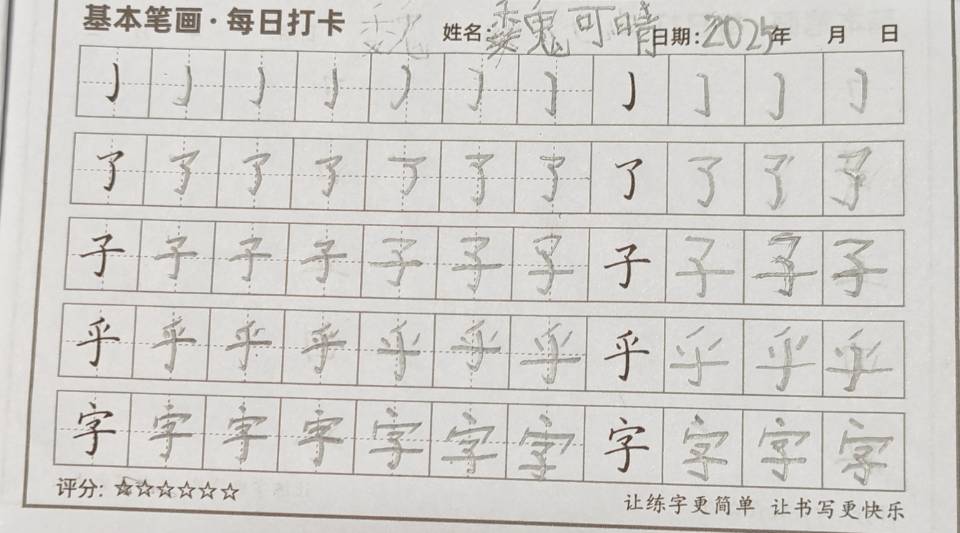 基本笔画·每日打卡 姓名: 魏可晴 日期: 2025年 月 日
亅 亅 亅 亅 亅 亅 亅 亅 亅 亅 亅
了 了 了 了 了 了 了 了 了 了 了
子 子 子 子 子 子 子 子 子 子 子
乎 乎 乎 乎 乎 乎 乎 乎 乎 乎 乎
字 字 字 字 字 字 字 字 字 字 字
评分: ☆☆☆☆☆☆ 让练字更简单 让书写更快乐